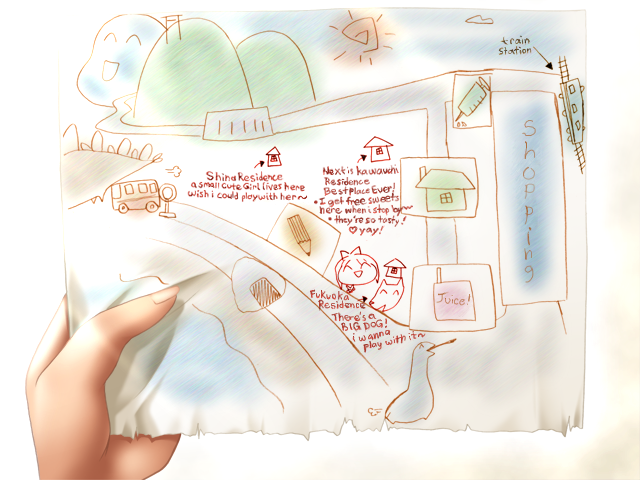 train
station
Shopping
Shina Residence
a small cute Girl lives here
wish i could play with her~
Next is kawauchi
Residence
Best place Ever!
• I get free sweets
here when i stop by~
• they're so tasty!
♡ yay!
Juice!
Fukuoka
Residence
There's a
BIG DOG!
i wanna
play with it~